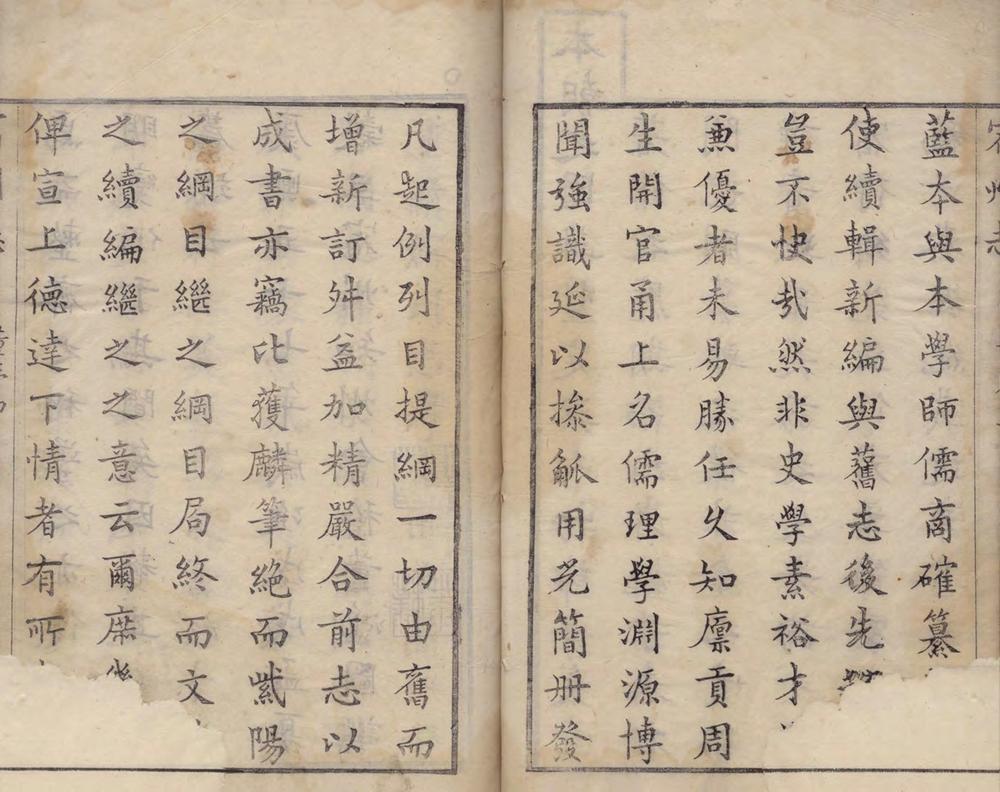 藍本與本學師儒商確纂
使續輯新編與舊志後先
豈不快哉然非史學素裕才
兼優者未易勝任久知廩貢周
生開官甬上名儒理學淵源博
聞強識延以搽觚用光簡册發
凡起例列目提綱一切由舊而
增新訂舛益加精嚴合前志以
成書亦竊比獲麟筆絕而紫陽
之綱目繼之綱目局終而文
之續編繼之之意云爾庶
俾宣上德達下情者有所